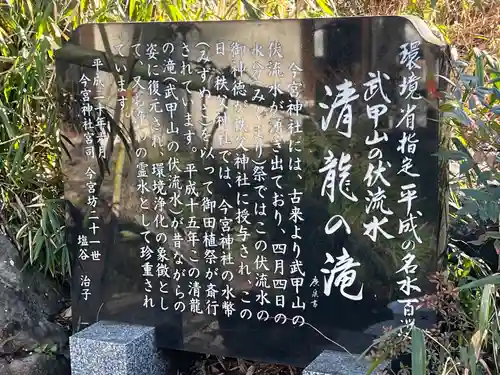 環境省指定 平成の名水百選
武甲山の伏流水
清龍の滝
今宮神社には、古来より武甲山の
伏流水が湧き出ており、四月四日の
水分(みくまり)祭ではこの伏流水の
御神徳が秩父神社に授与され、この
日、秩父神社では、今宮神社の水幣
(みずぬさ)を以って御田植祭が斎行
されています。平成十五年この清龍
の滝(武甲山の伏流水)が昔ながらの
姿に復元され、環境浄化の象徴とし
て、又いやしの霊水として珍重され
ています。
平成二十年六月
今宮神社宮司 今宮坊二十一世
塩谷 治子